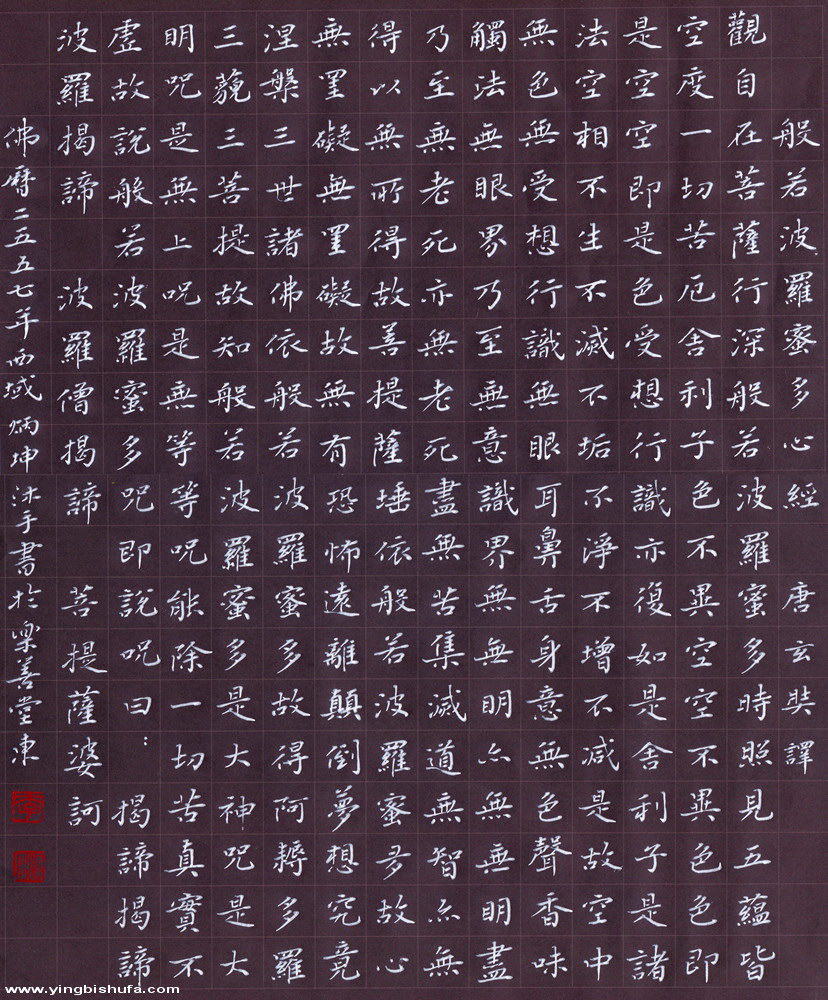 般若波羅蜜多心經 唐玄奘譯
觀自在菩薩行深般若波羅蜜多時照見五蘊皆
空度一切苦厄舍利子色不異空空不異色色即
是空空即是色受想行識亦復如是舍利子是諸
法空相不生不滅不垢不淨不增不减是故空中
無色無受想行識無眼耳鼻舌身意無色聲香味
觸法無眼界乃至無意識界無無明亦無無明盡
乃至無老死亦無老死盡無苦集滅道無智亦無
得以無所得故菩提薩埵依般若波羅蜜多故心
無罣礙無罣礙故無有恐怖遠離顛倒夢想究竟
涅槃三世諸佛依般若波羅蜜多故得阿耨多羅
三藐三菩提故知般若波羅蜜多是大神咒是大
明咒是無上咒是無等等咒能除一切苦真實不
虛故說般若波羅蜜多咒即說咒曰：揭諦揭諦
波羅揭諦 波羅僧揭諦 菩提薩婆訶
佛曆二五五七年西域炳坤沐手書於樂善堂東
www.yingbishufa.com